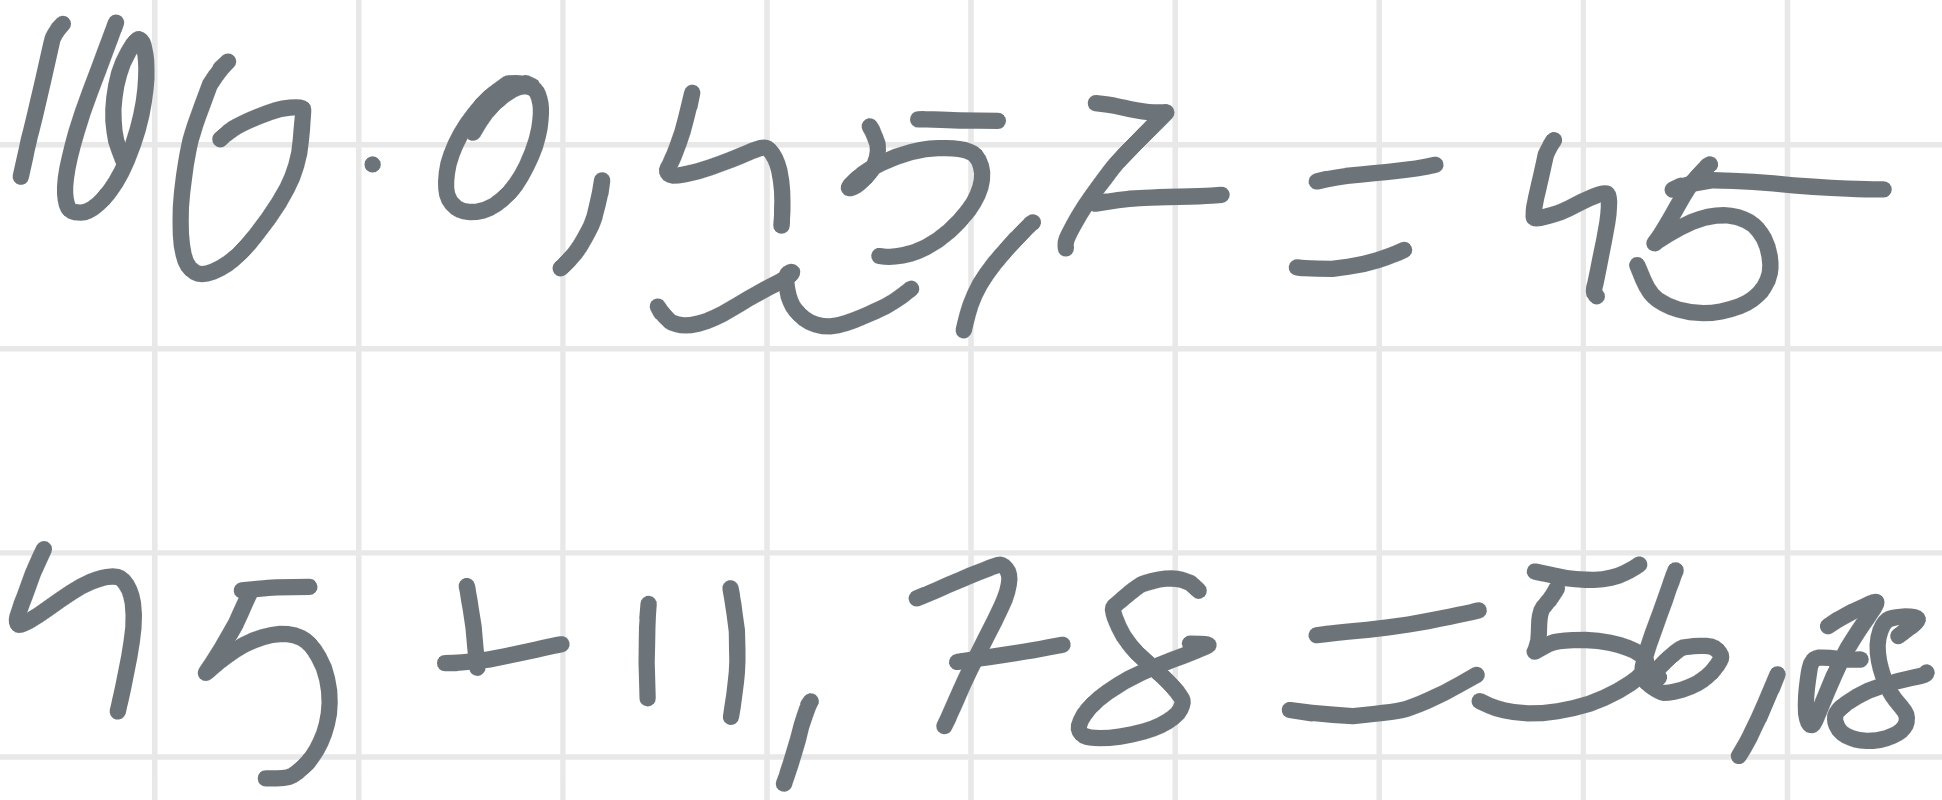 100 · 0,45,7 = 45
45 + 11,78 = 56,78